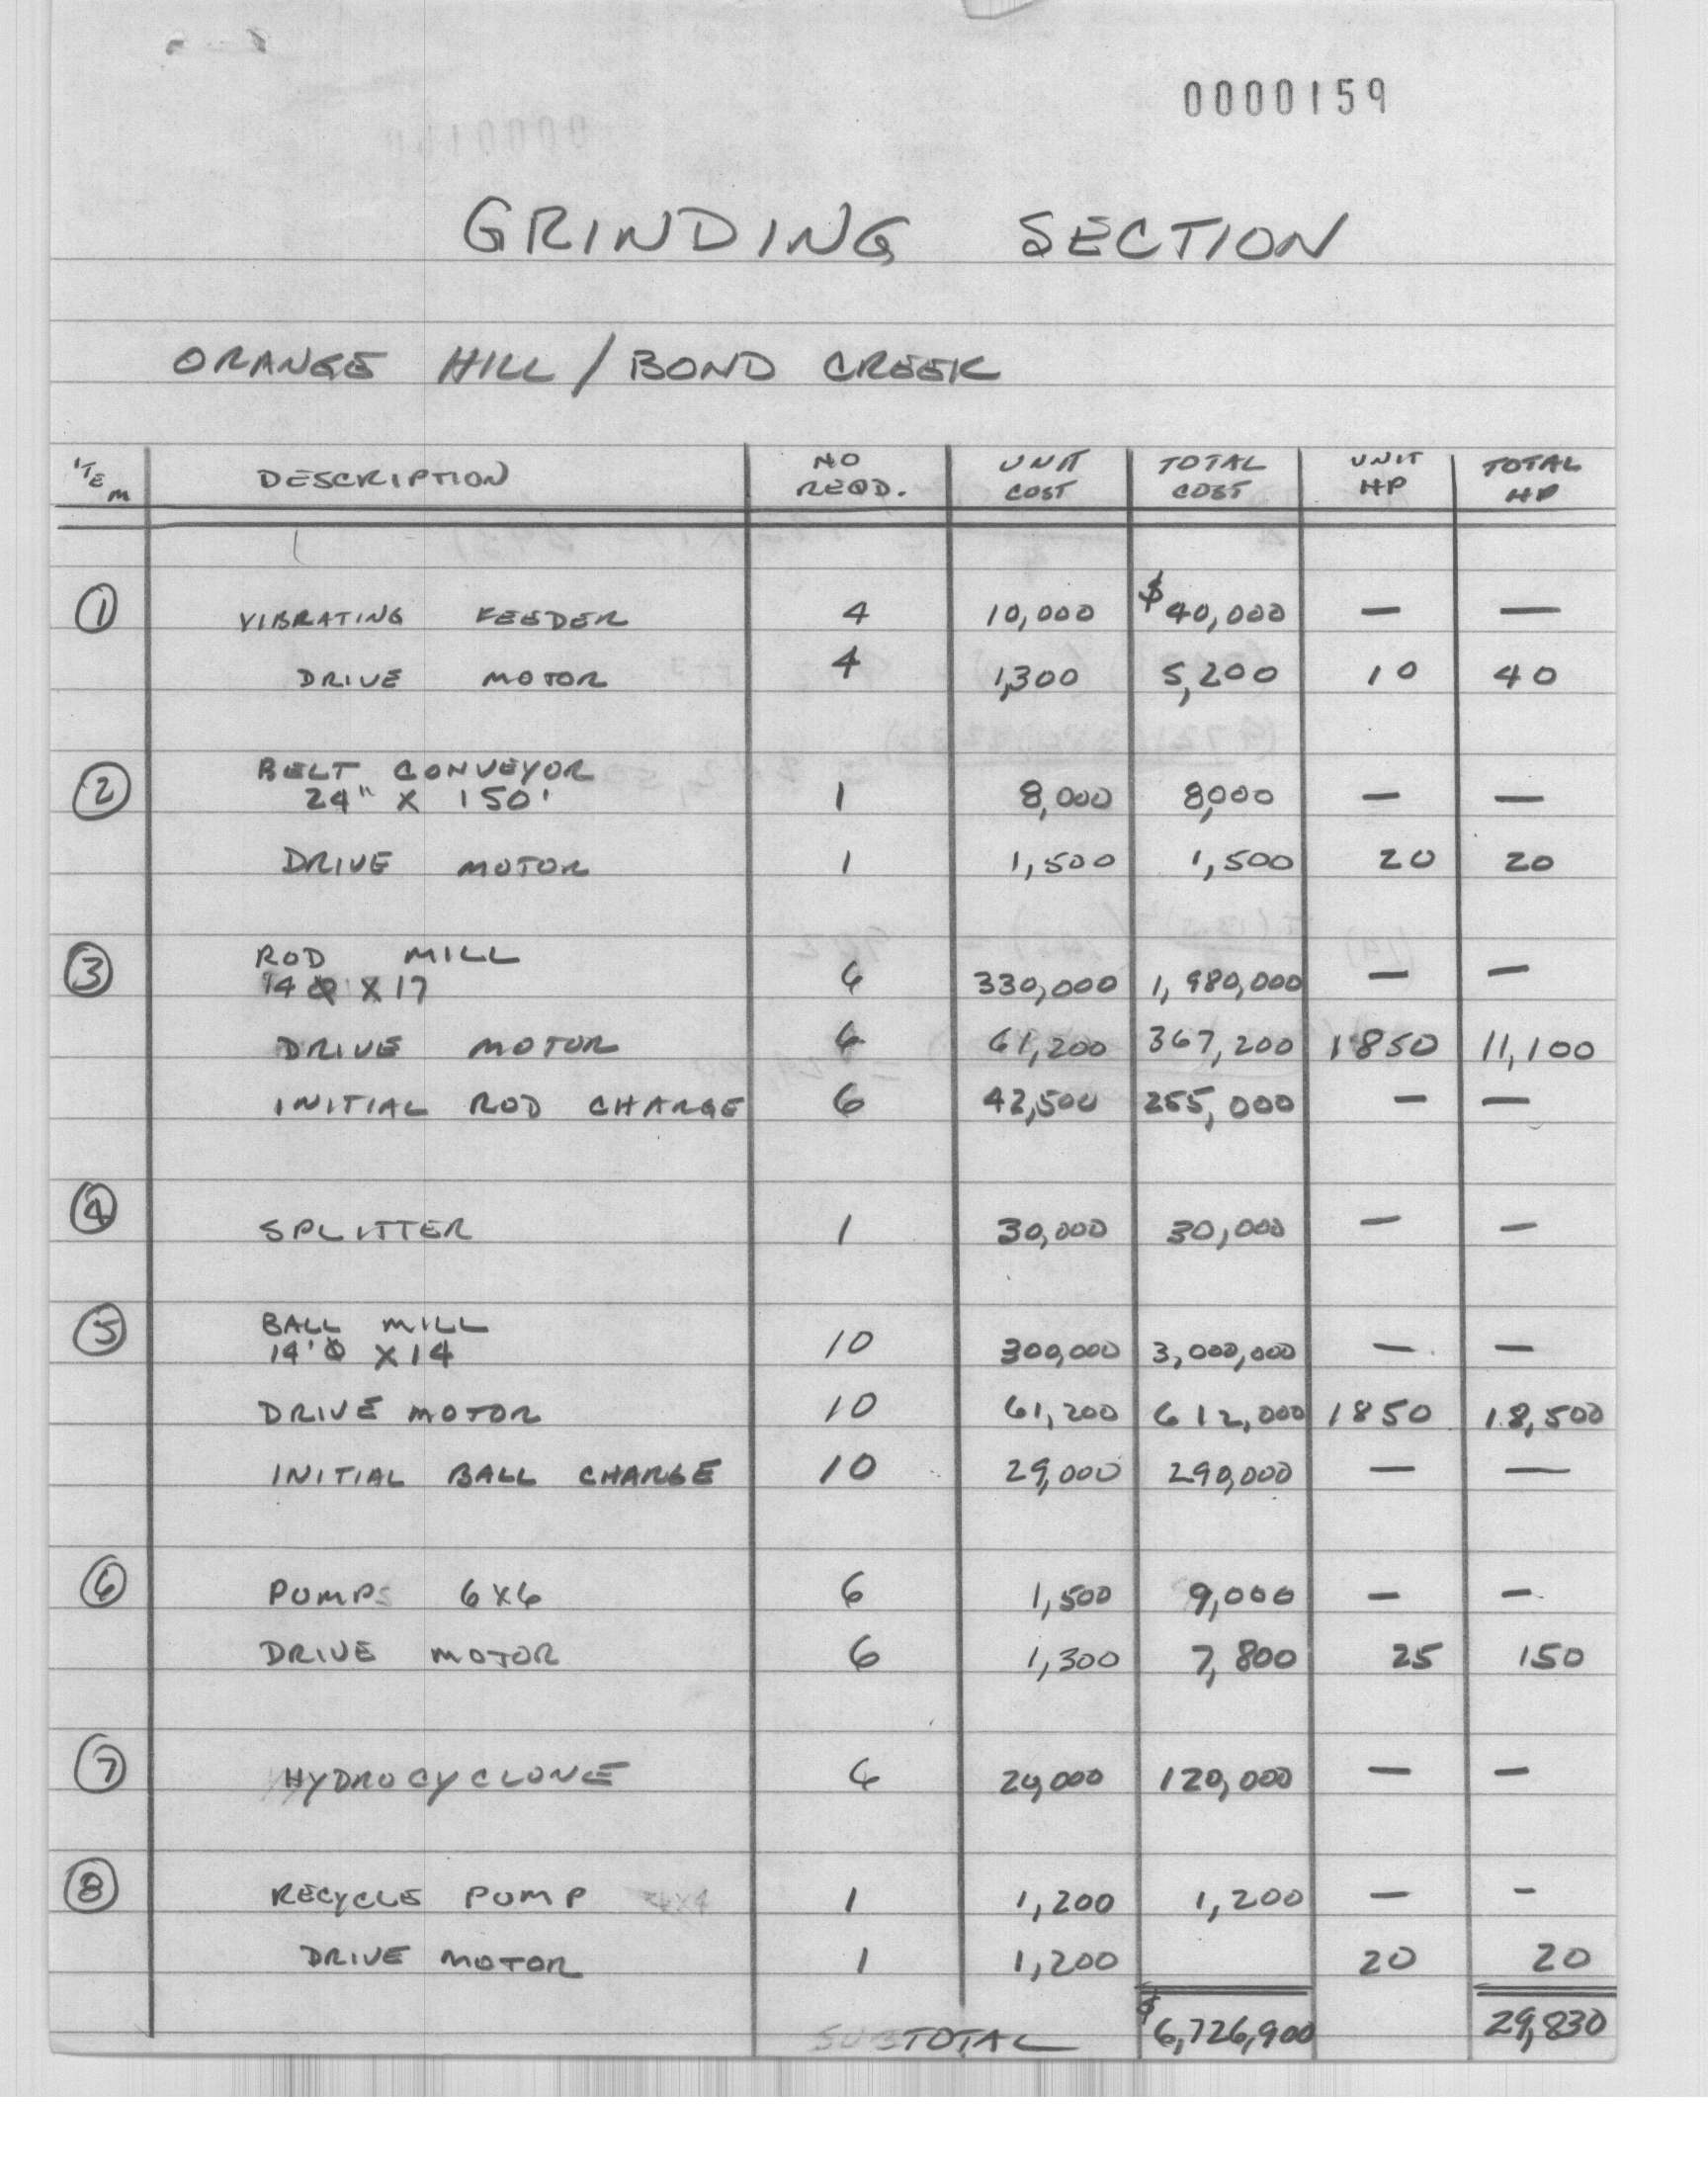 0000159
GRINDING SECTION
ORANGE HILL / BOND CREEK
ITEM DESCRIPTION NO REQD. UNIT COST TOTAL COST UNIT HP TOTAL HP
1 VIBRATING FEEDER 4 10,000 $40,000 — —
DRIVE MOTOR 4 1,300 5,200 10 40
BELT CONVEYOR
2 24" X 150' 1 8,000 8,000 — —
DRIVE MOTOR 1 1,500 1,500 20 20
ROD MILL
3 14 Φ X 17 6 330,000 1,980,000 — —
DRIVE MOTOR 6 61,200 367,200 1850 11,100
INITIAL ROD CHARGE 6 42,500 255,000 — —
4 SPLITTER 1 30,000 30,000 — —
BALL MILL
5 14'Φ X 14 10 300,000 3,000,000 — —
DRIVE MOTOR 10 61,200 612,000 1850 18,500
INITIAL BALL CHARGE 10 29,000 290,000 — —
6 PUMPS 6X6 6 1,500 9,000 — —
DRIVE MOTOR 6 1,300 7,800 25 150
7 HYDROCYCLONE 6 20,000 120,000 — —
8 RECYCLE PUMP 4X4 1 1,200 1,200 — -
DRIVE MOTOR 1 1,200 20 20
SUBTOTAL $6,726,900 29,830